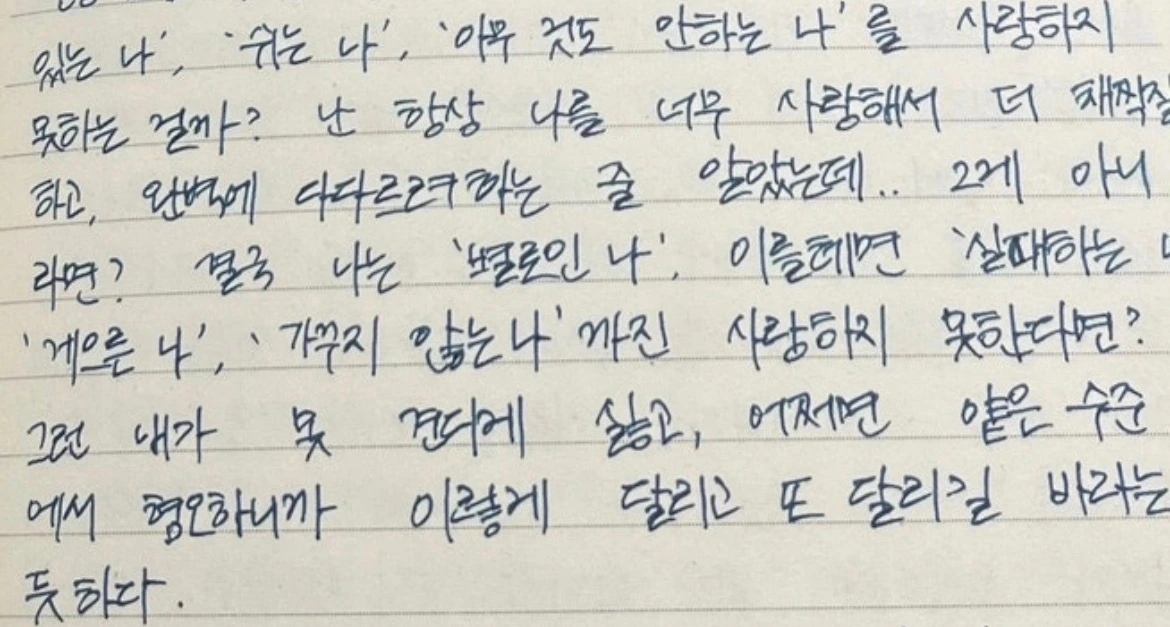 있는 나', '쉬는 나', '아무 것도 안하는 나'를 사랑하지
못하는 걸까? 난 항상 나를 너무 사랑해서 더 채찍질
하고, 완벽에 다다르려 하는 줄 알았는데.. 그게 아니
라면? 결국 나는 '별로인 나', 이를테면 '실패하는 나
'게으른 나', '가꾸지 않는 나'까진 사랑하지 못한다면?
그런 내가 못 견디게 싫고, 어쩌면 얕은 수준
에서 혐오하니까 이렇게 달리고 또 달리길 바라는
듯하다.